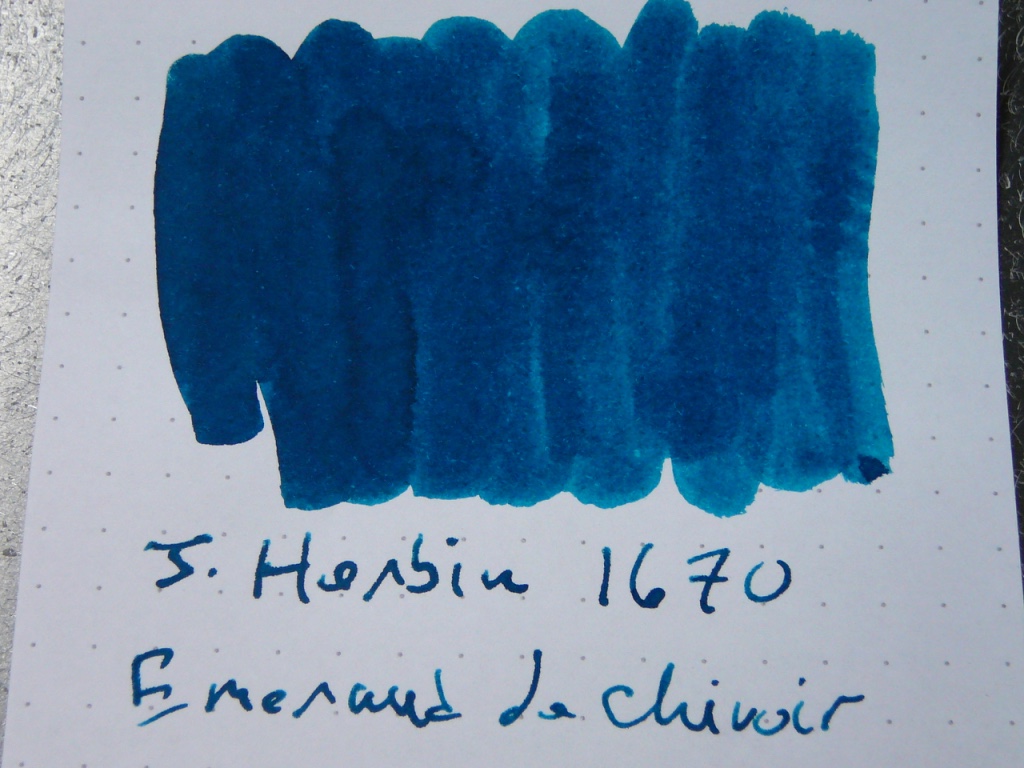 J. Herbin 1670
Emeraud de Chivoir